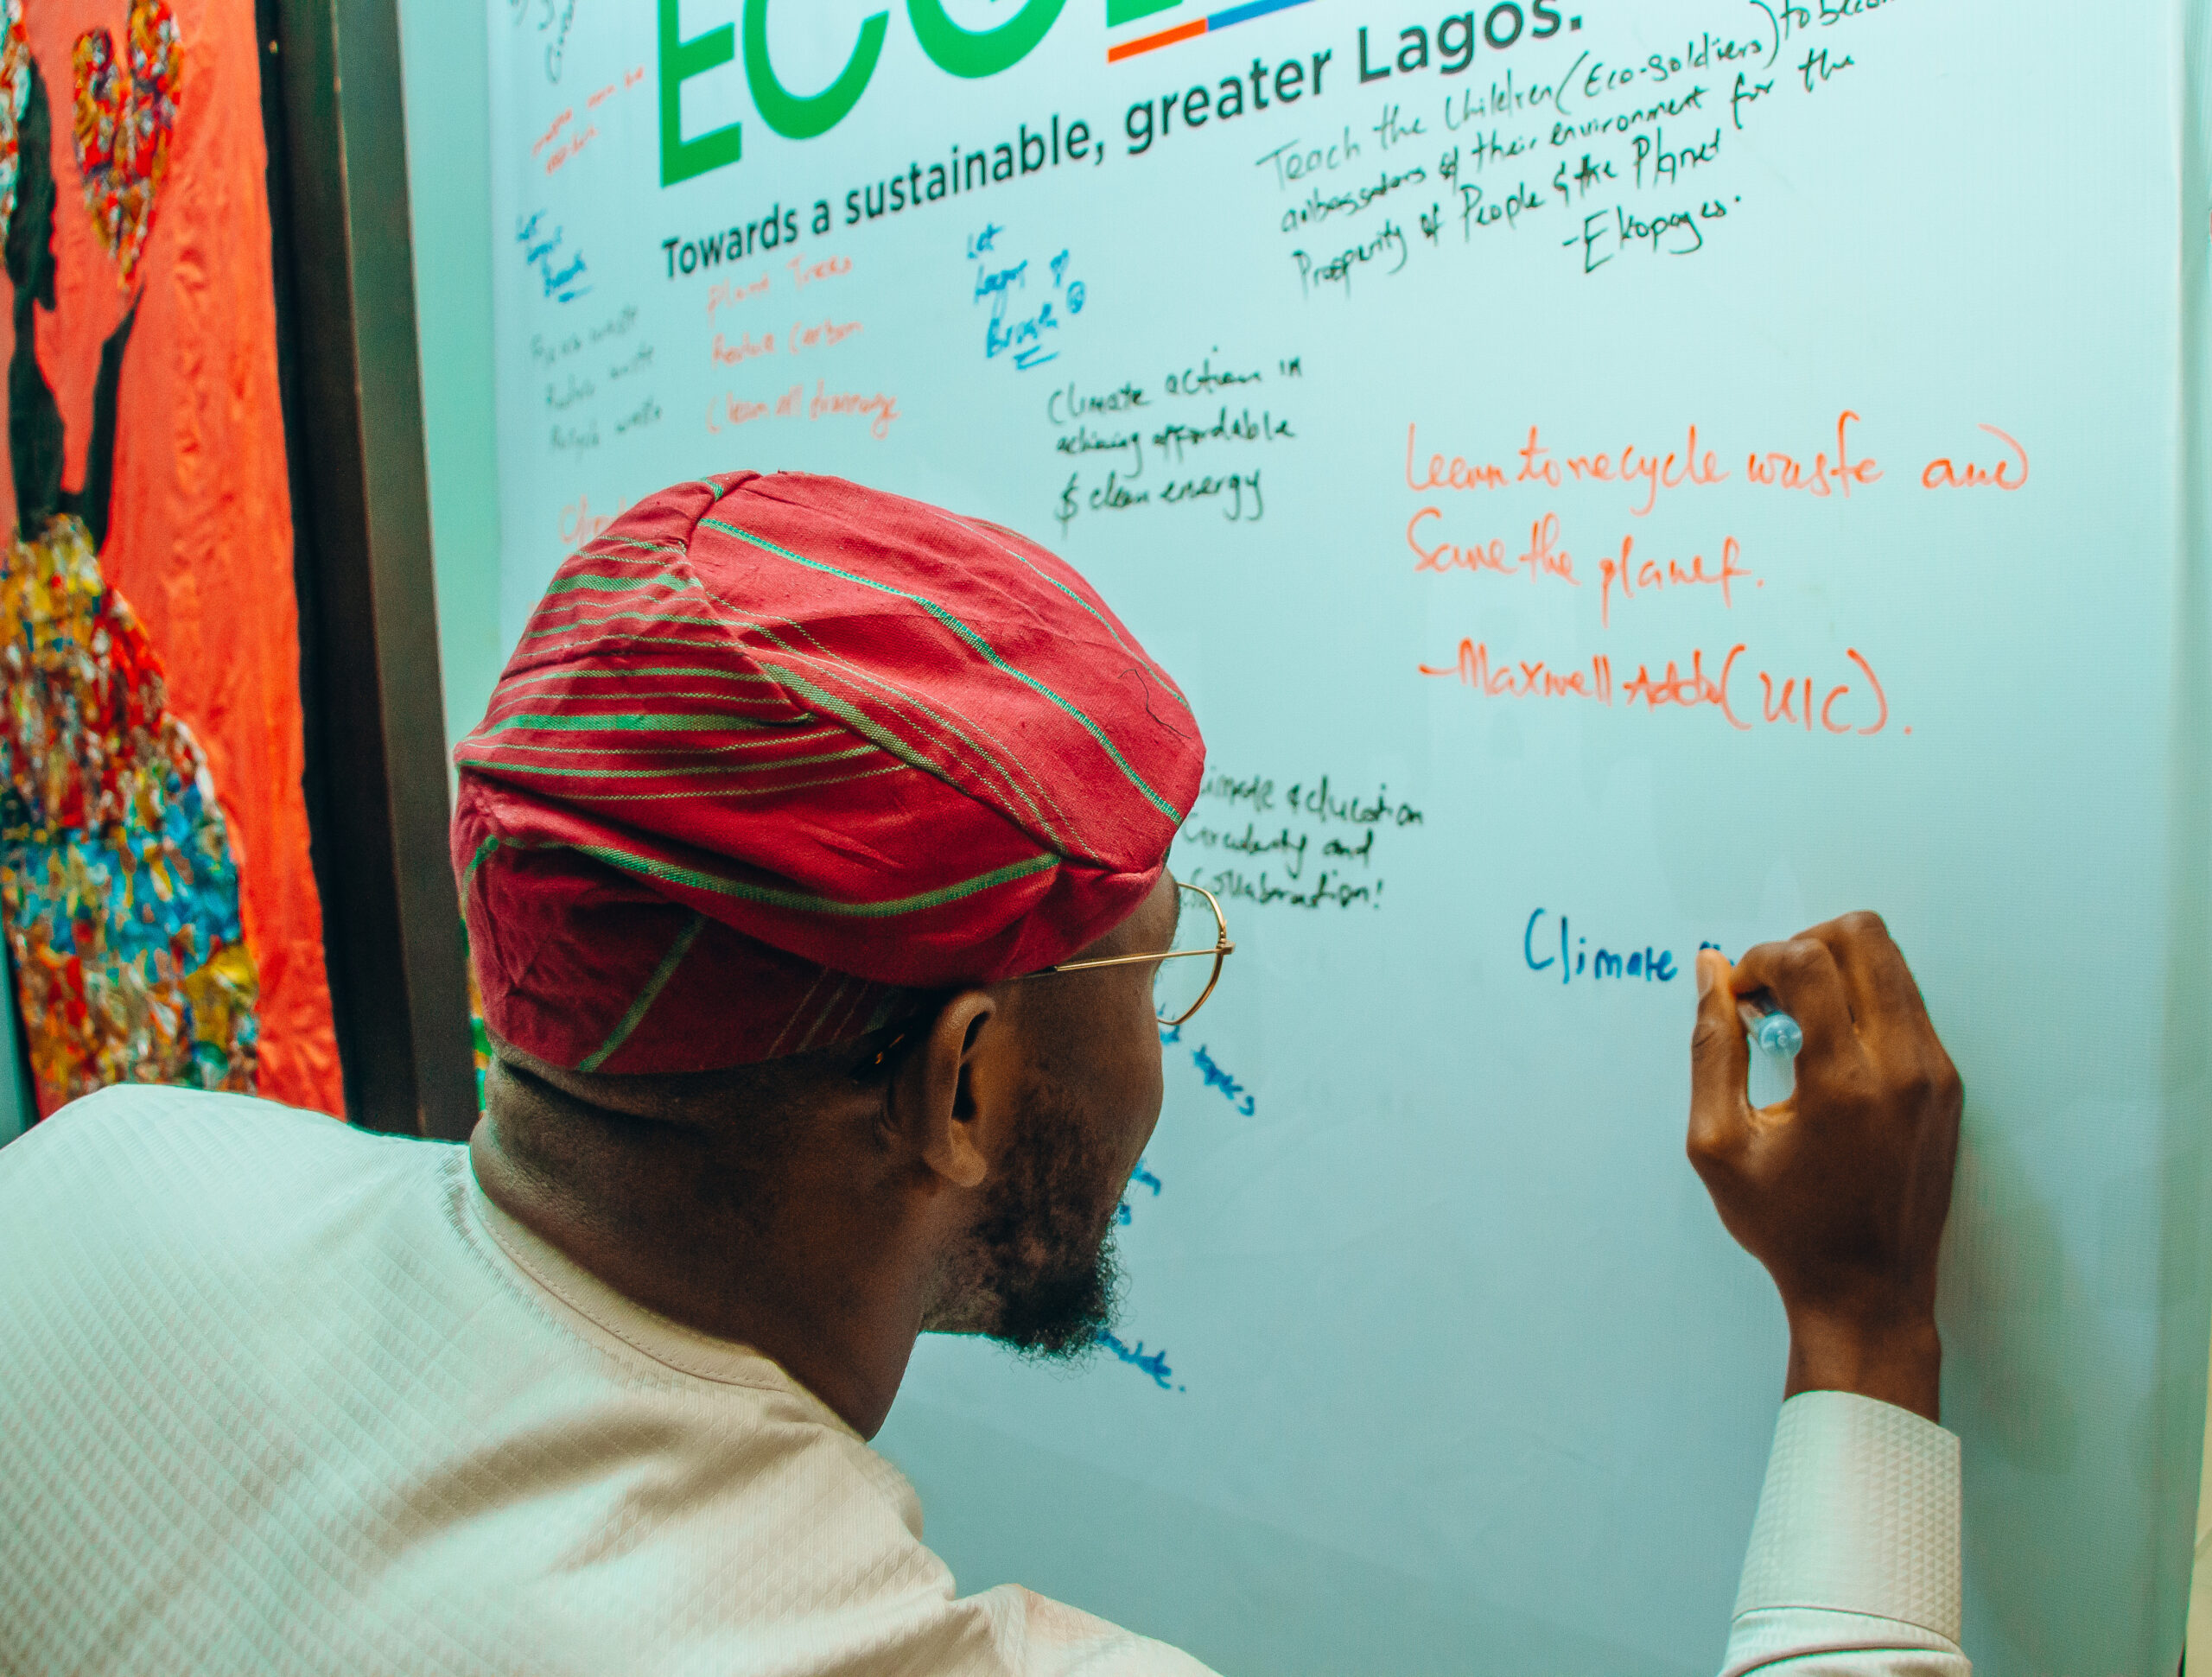 ECO
Towards a sustainable, greater Lagos.
Teach the Children (Eco-Soldiers) to
ambassadors of their environment for the
Prosperity of People & the Planet
- Ekopages.
Let
Lagos
Plant Trees
Reduce Carbon
Clean all drainage
waste
waste
Recycle waste
Let
Lagos
Climate action in
achieving affordable
& clean energy
Learn to recycle waste and
Save the planet.
- Maxwell Addo (UIC).
education
Circularity and
Collaboration!
Climate
topics